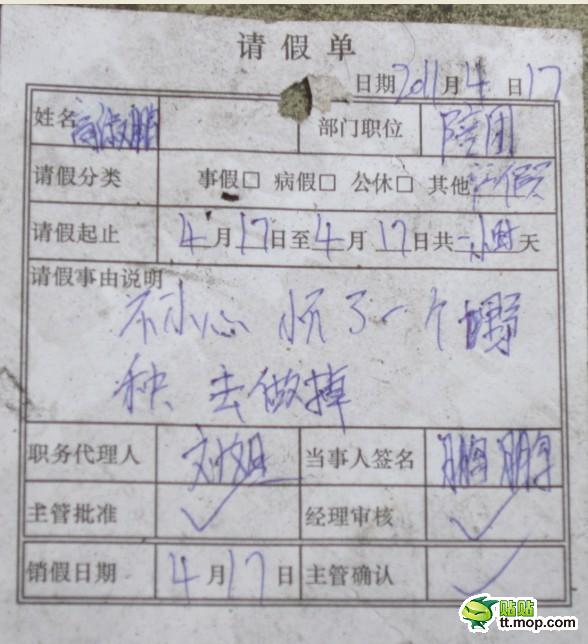 请假单
日期 2011月4日17
姓名 部门职位 陪团
请假分类 事假□ 病假□ 公休□ 其他
请假起止 4月17日至4月17日共一小时天
请假事由说明
不小心 怀了一个
种 去做掉
职务代理人 刘姐 当事人签名 鹏鹏
主管批准 ✓ 经理审核 ✓
销假日期 4月17日 主管确认 ✓
贴贴
tt.mop.com